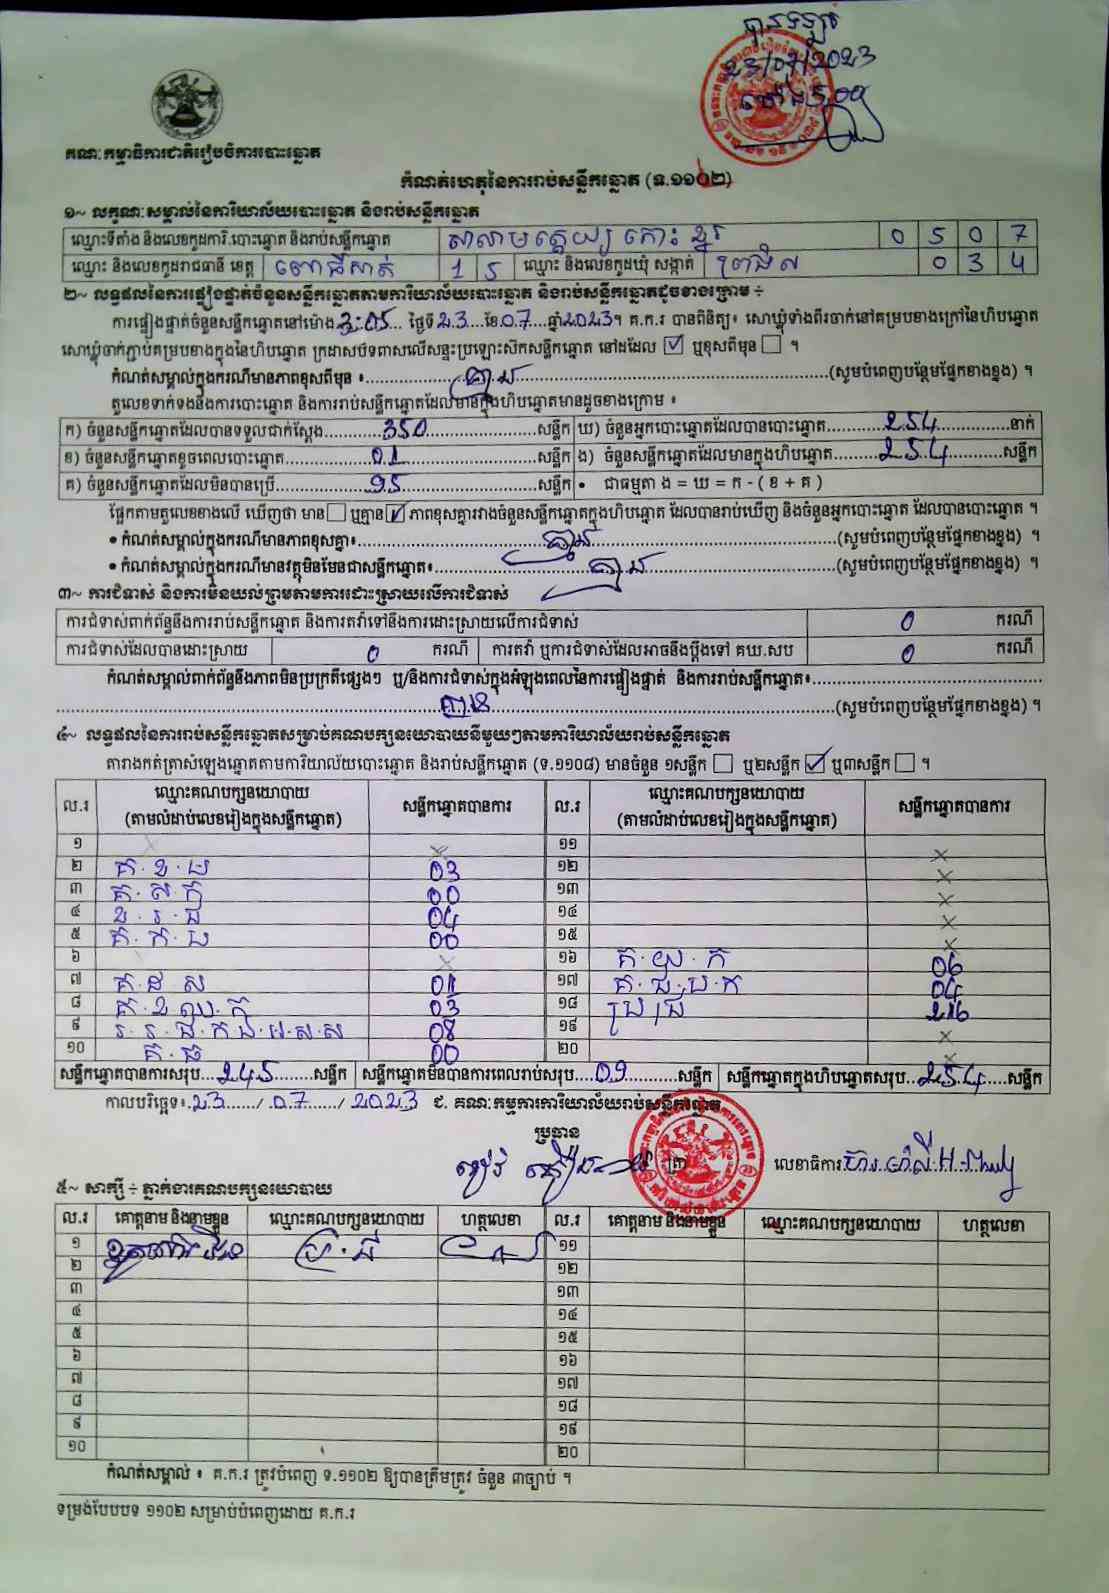 បានទទួល
23/07/2023
គណៈកម្មាធិការជាតិរៀបចំការបោះឆ្នោត
កំណត់ហេតុនៃការរាប់សន្លឹកឆ្នោត (ទ.១១០២)
១~ លក្ខណៈសម្គាល់នៃការិយាល័យបោះឆ្នោត និងរាប់សន្លឹកឆ្នោត
ឈ្មោះទីតាំង និងលេខកូដការិ.បោះឆ្នោត និងរាប់សន្លឹកឆ្នោត សាលាមត្តេយ្យ កោះ 0 5 0 7
ឈ្មោះ និងលេខកូដរាជធានី ខេត្ត ពោធិ៍សាត់ 1 5 ឈ្មោះ និងលេខកូដឃុំ សង្កាត់ 0 3 4
២~ លទ្ធផលនៃការផ្ទៀងផ្ទាត់ចំនួនសន្លឹកឆ្នោតតាមការិយាល័យបោះឆ្នោត និងរាប់សន្លឹកឆ្នោតដូចខាងក្រោម ÷
ការផ្ទៀងផ្ទាត់ចំនួនសន្លឹកឆ្នោតនៅម៉ោង 3:05 ថ្ងៃទី 23 ខែ 07 ឆ្នាំ 2023។ គ.ក.រ បានពិនិត្យ៖ សោឃ្លុំទាំងពីរចាក់នៅគម្របខាងក្រៅនៃហិបឆ្នោត
សោឃ្លុំចាក់ភ្ជាប់គម្របខាងក្នុងនៃហិបឆ្នោត ក្រដាសបិទពាសលើសន្ទះប្រឡោះសិកសន្លឹកឆ្នោត នៅដដែល ☑ ឬខុសពីមុន ☐ ។
កំណត់សម្គាល់ក្នុងករណីមានភាពខុសពីមុន ៖ គ្មាន (សូមបំពេញបន្ថែមផ្នែកខាងខ្នង) ។
តួលេខទាក់ទងនឹងការបោះឆ្នោត និងការរាប់សន្លឹកឆ្នោតដែលមានក្នុងហិបឆ្នោតមានដូចខាងក្រោម ៖
ក) ចំនួនសន្លឹកឆ្នោតដែលបានទទួលជាក់ស្តែង 350 សន្លឹក ឃ) ចំនួនអ្នកបោះឆ្នោតដែលបានបោះឆ្នោត 254 នាក់
ខ) ចំនួនសន្លឹកឆ្នោតខូចពេលបោះឆ្នោត 01 សន្លឹក ង) ចំនួនសន្លឹកឆ្នោតដែលមានក្នុងហិបឆ្នោត 254 សន្លឹក
គ) ចំនួនសន្លឹកឆ្នោតដែលមិនបានប្រើ 95 សន្លឹក • ជាធម្មតា ង = ឃ = ក - ( ខ + គ )
ផ្អែកតាមតួលេខខាងលើ ឃើញថា មាន ☐ ឬគ្មាន ☑ ភាពខុសគ្នារវាងចំនួនសន្លឹកឆ្នោតក្នុងហិបឆ្នោត ដែលបានរាប់ឃើញ និងចំនួនអ្នកបោះឆ្នោត ដែលបានបោះឆ្នោត ។
• កំណត់សម្គាល់ក្នុងករណីមានភាពខុសគ្នា៖ គ្មាន (សូមបំពេញបន្ថែមផ្នែកខាងខ្នង) ។
• កំណត់សម្គាល់ក្នុងករណីមានវត្ថុមិនមែនជាសន្លឹកឆ្នោត៖ គ្មាន (សូមបំពេញបន្ថែមផ្នែកខាងខ្នង) ។
៣~ ការជំទាស់ និងការមិនយល់ព្រមតាមការដោះស្រាយលើការជំទាស់
ការជំទាស់ពាក់ព័ន្ធនឹងការរាប់សន្លឹកឆ្នោត និងការតវ៉ាទៅនឹងការដោះស្រាយលើការជំទាស់ 0 ករណី
ការជំទាស់ដែលបានដោះស្រាយ 0 ករណី ការតវ៉ា ឬការជំទាស់ដែលអាចនឹងប្តឹងទៅ គឃ.សប 0 ករណី
កំណត់សម្គាល់ពាក់ព័ន្ធនឹងភាពមិនប្រក្រតីផ្សេងៗ ឬ/និងការជំទាស់ក្នុងអំឡុងពេលនៃការផ្ទៀងផ្ទាត់ និងការរាប់សន្លឹកឆ្នោត៖
គ្មាន (សូមបំពេញបន្ថែមផ្នែកខាងខ្នង) ។
៤~ លទ្ធផលនៃការរាប់សន្លឹកឆ្នោតសម្រាប់គណបក្សនយោបាយនីមួយៗតាមការិយាល័យរាប់សន្លឹកឆ្នោត
តារាងកត់ត្រាសំឡេងឆ្នោតតាមការិយាល័យបោះឆ្នោត និងរាប់សន្លឹកឆ្នោត (ទ.១១០៨) មានចំនួន ១សន្លឹក ☐ ឬ២សន្លឹក ☑ ឬ៣សន្លឹក ☐ ។
ល.រ ឈ្មោះគណបក្សនយោបាយ (តាមលំដាប់លេខរៀងក្នុងសន្លឹកឆ្នោត) សន្លឹកឆ្នោតបានការ ល.រ ឈ្មោះគណបក្សនយោបាយ (តាមលំដាប់លេខរៀងក្នុងសន្លឹកឆ្នោត) សន្លឹកឆ្នោតបានការ
១ x x ១១ x
២ គ.ខ.ម 03 ១២ x
៣ គ.ស.ក 00 ១៣ x
៤ ខ.រ.ជ 04 ១៤ x
៥ គ.ក.ប 00 ១៥ x
៦ x ១៦ គ.យ.ក 06
៧ គ.ដ.ស 01 ១៧ គ.ជ.ប.ក 04
៨ គ.ខ.ឈ.ក 03 ១៨ ប្រ ជ 216
៩ 08 ១៩ x
១០ គ.ធ 00 ២០ x
សន្លឹកឆ្នោតបានការសរុប 245 សន្លឹក សន្លឹកឆ្នោតមិនបានការពេលរាប់សរុប 09 សន្លឹក សន្លឹកឆ្នោតក្នុងហិបឆ្នោតសរុប 254 សន្លឹក
កាលបរិច្ឆេទ៖ 23 / 07 / 2023 ជ. គណៈកម្មការការិយាល័យរាប់សន្លឹកឆ្នោត
ប្រធាន
លេខាធិការ
៥~ សាក្សី ÷ ភ្នាក់ងារគណបក្សនយោបាយ
ល.រ គោត្តនាម និងនាមខ្លួន ឈ្មោះគណបក្សនយោបាយ ហត្ថលេខា ល.រ គោត្តនាម និងនាមខ្លួន ឈ្មោះគណបក្សនយោបាយ ហត្ថលេខា
១ ប្រ.ជ ១១
២ ១២
៣ ១៣
៤ ១៤
៥ ១៥
៦ ១៦
៧ ១៧
៨ ១៨
៩ ១៩
១០ ២០
កំណត់សម្គាល់ ៖ គ.ក.រ ត្រូវបំពេញ ទ.១១០២ ឱ្យបានត្រឹមត្រូវ ចំនួន ៣ច្បាប់ ។
ទម្រង់បែបបទ ១១០២ សម្រាប់បំពេញដោយ គ.ក.រ